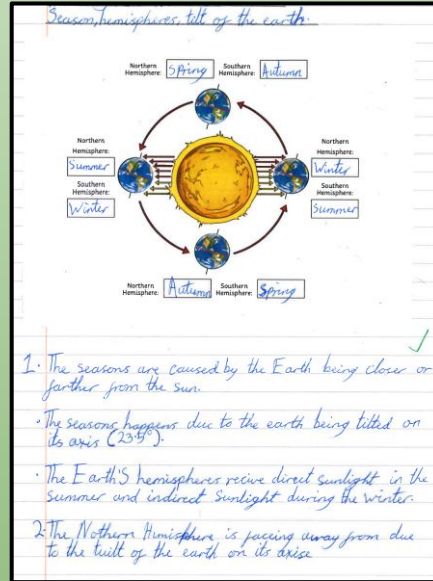 Season, hemispheres, tilt of the earth.
Northern Hemisphere: Spring Southern Hemisphere: Autumn
Northern Hemisphere: Summer
Southern Hemisphere: Winter
Northern Hemisphere: Winter
Southern Hemisphere: Summer
Northern Hemisphere: Autumn Southern Hemisphere: Spring
1. The seasons are caused by the Earth being closer or
farther from the sun.
· The seasons happens due to the earth being tilted on
its axis (23.5°).
· The Earth'S hemispheres recive direct sunlight in the
summer and indirect sunlight during the winter.
2. The Nothern Himisphere is facing away from due
to the tuilt of the earth on its axise